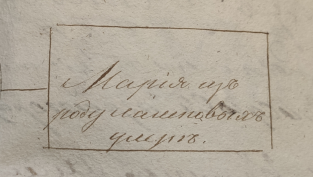 Марія изъ
роду Пашковыхъ
умерла.